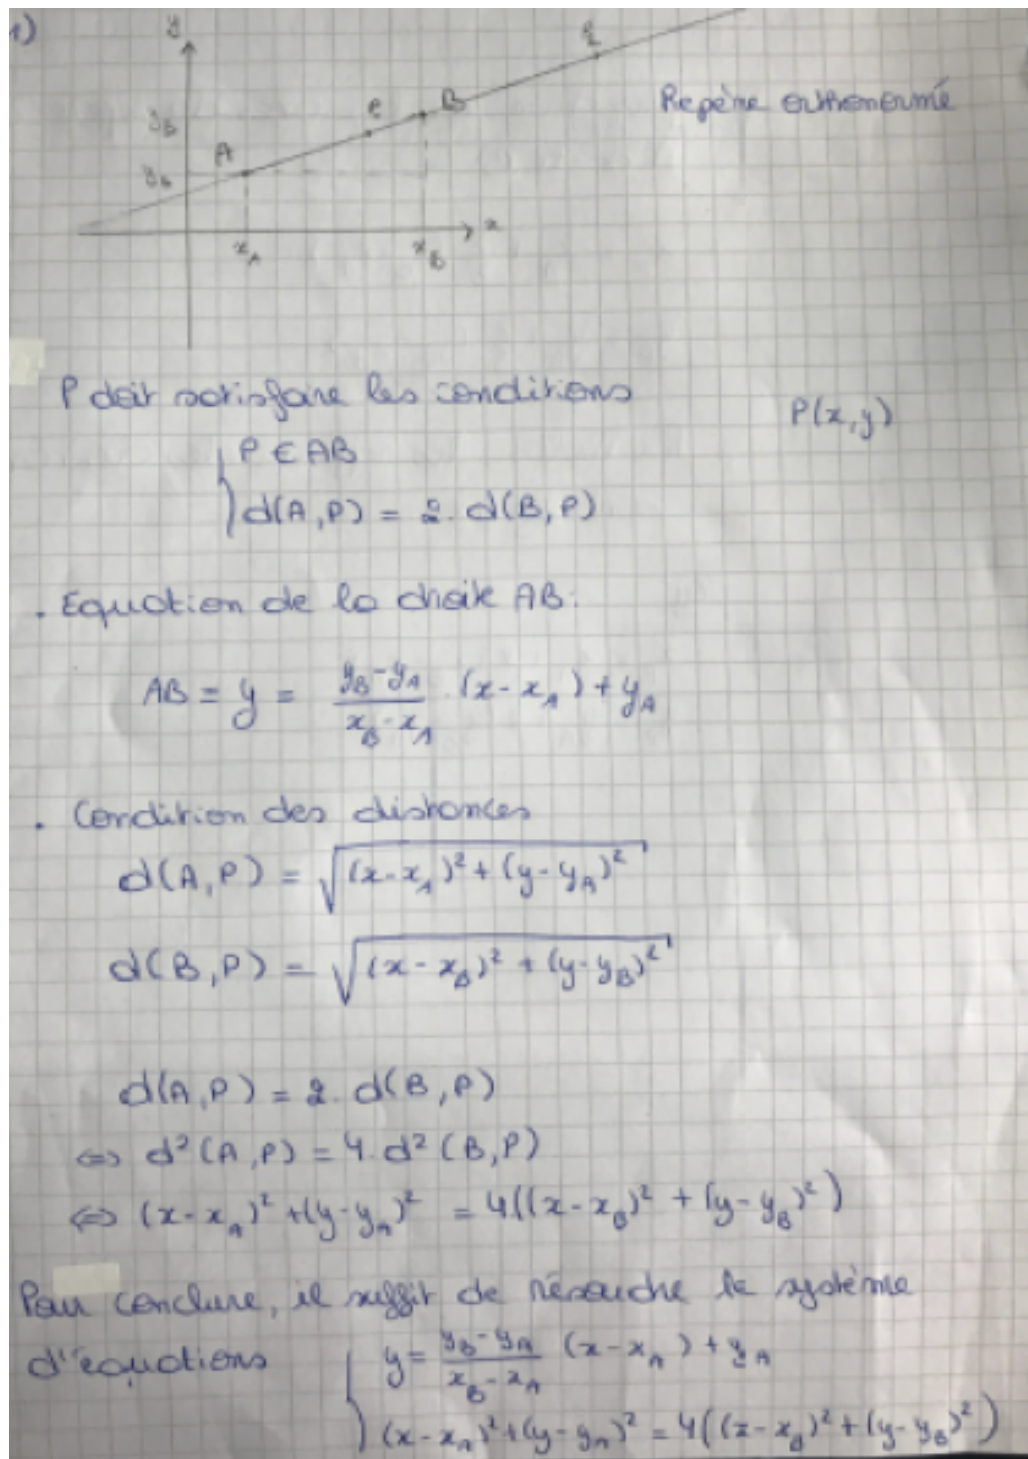 1)
y
Q
P
B
Repère orthonormé
y_B
A
y_A
x
x_A
x_B
P doit satisfaire les conditions
P(x,y)
{ P ∈ AB
d(A,P) = 2. d(B,P)
. Equation de la droite AB:
AB ≡ y = \frac{y_B-y_A}{x_B-x_A} . (x-x_A) + y_A
. Condition des distances
d(A,P) = \sqrt{(x-x_A)² + (y-y_A)²}
d(B,P) = \sqrt{(x-x_B)² + (y-y_B)²}
d(A,P) = 2. d(B,P)
⇔ d²(A,P) = 4. d²(B,P)
⇔ (x-x_A)² + (y-y_A)² = 4((x-x_B)² + (y-y_B)²)
Pour conclure, il suffit de résoudre le système
d'équations { y = \frac{y_B-y_A}{x_B-x_A} (x-x_A) + y_A
(x-x_A)² + (y-y_A)² = 4((x-x_B)² + (y-y_B)²)